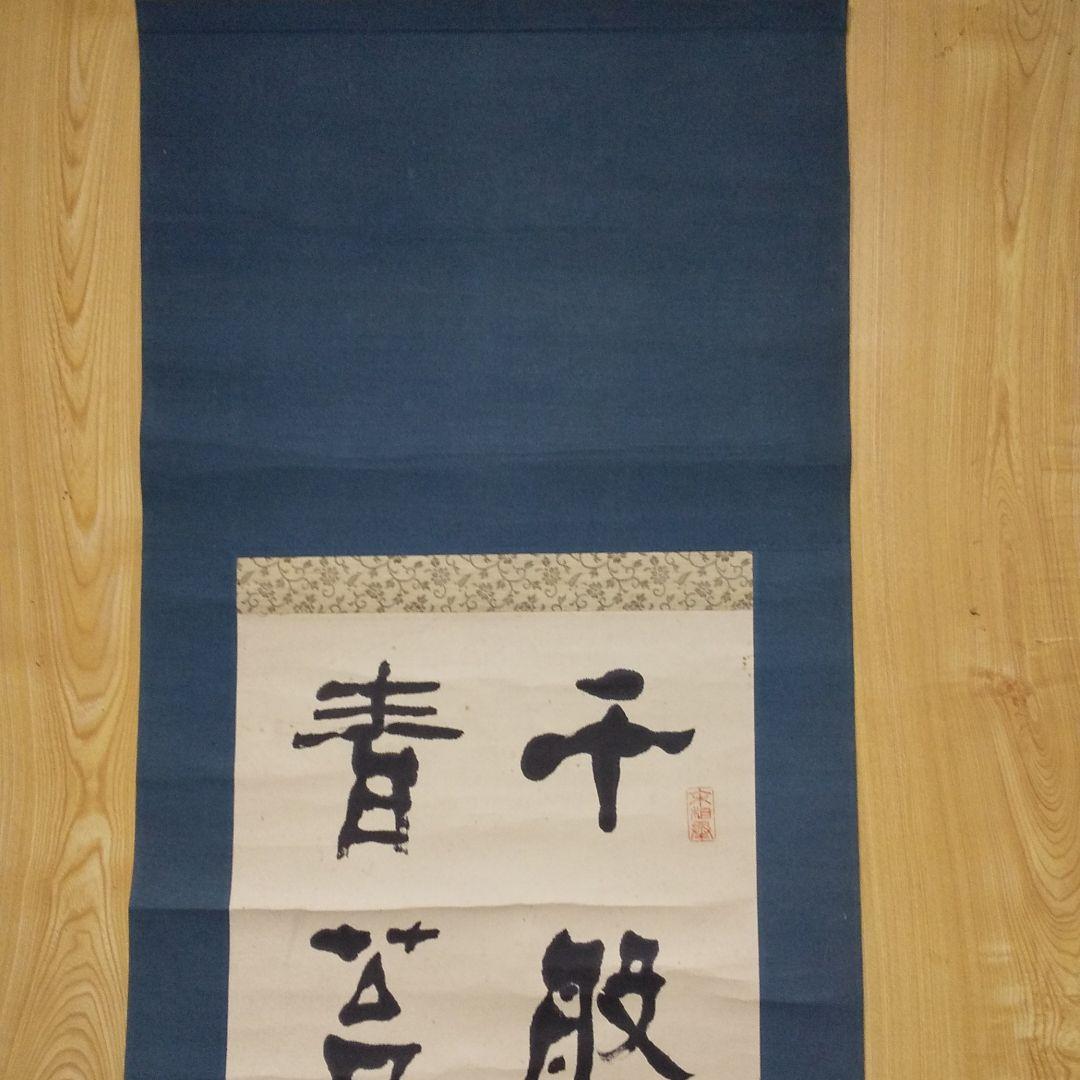 千般
青苔